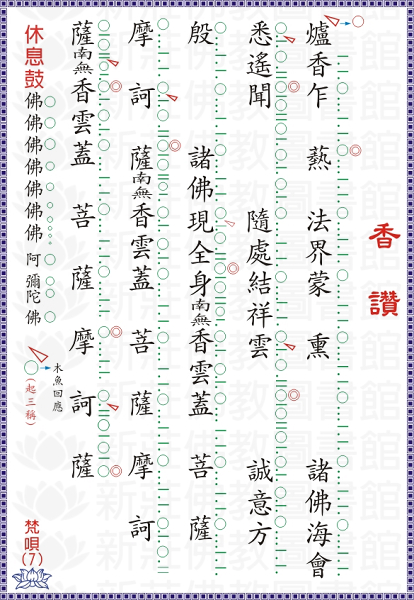 香讚
爐香乍爇法界蒙熏諸佛海會
悉遙聞隨處結祥雲誠意方
殷諸佛現全身南無香雲蓋菩薩
摩訶薩南無香雲蓋菩薩摩訶
薩南無香雲蓋菩薩摩訶薩
木魚回應
(起三稱)
休息鼓
佛佛佛佛佛佛佛阿彌陀佛
梵唄(7)
新莊佛教圖書館